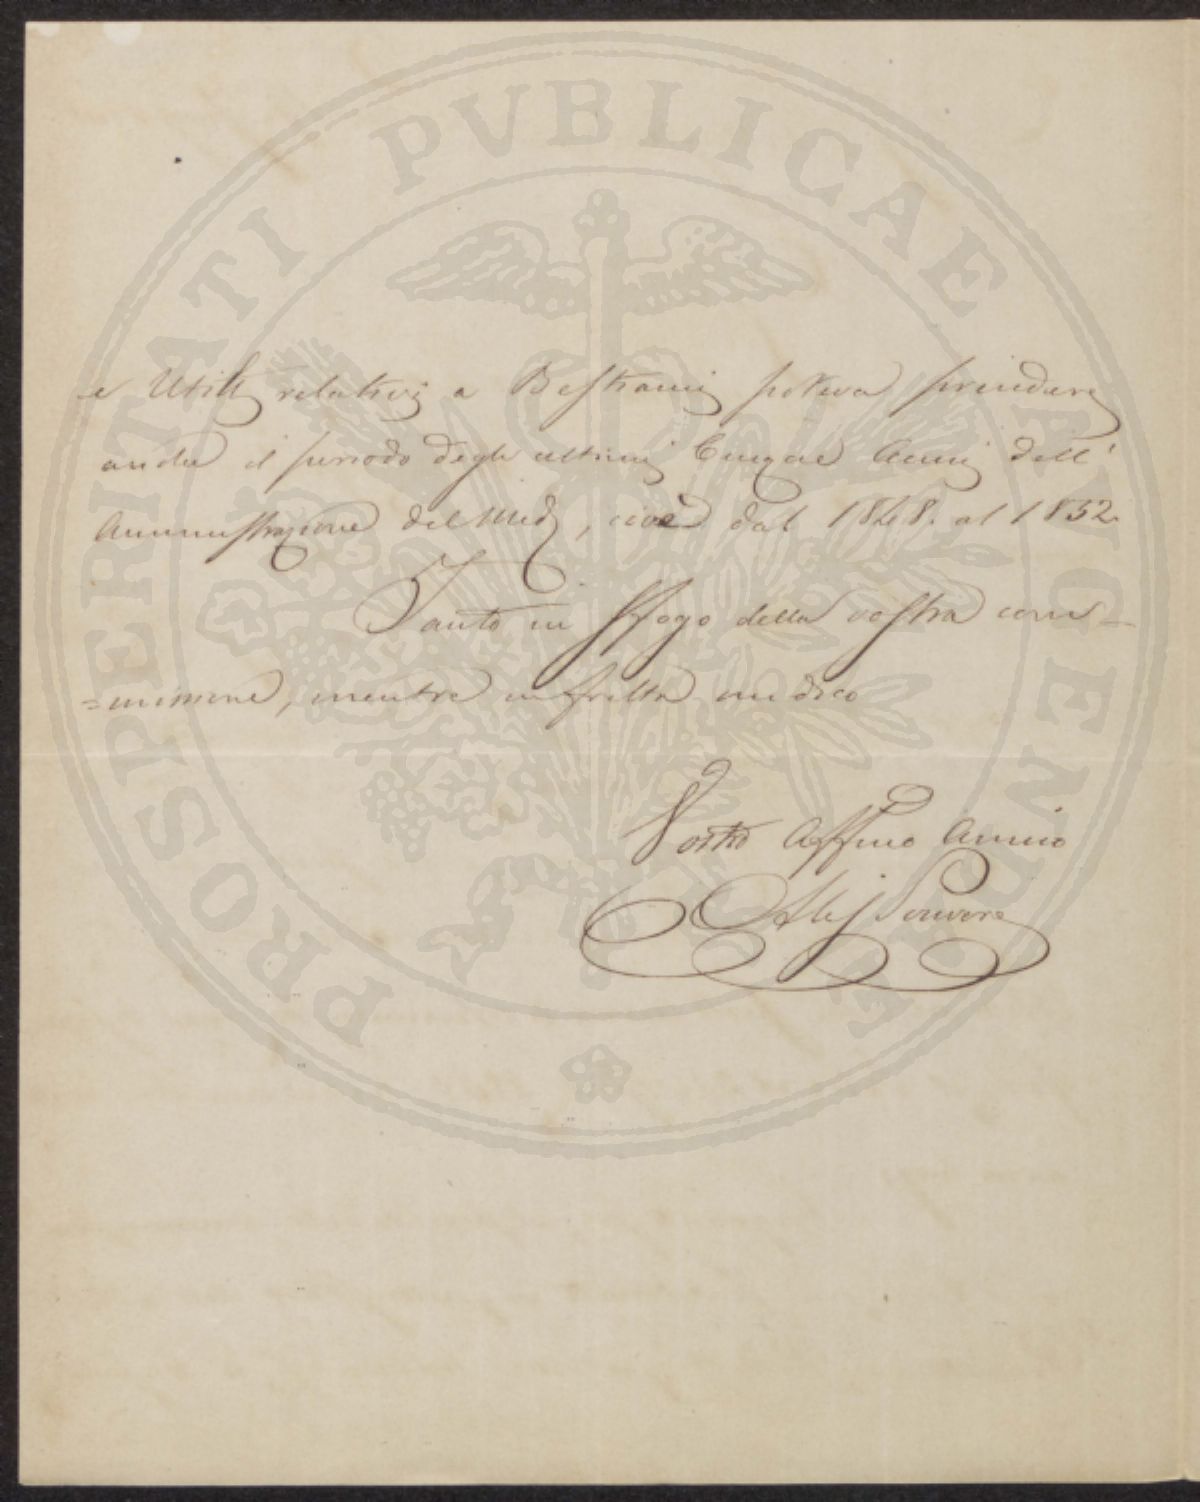 PROSPERITATI PUBLICAE AUGENDAE
e Utili relativi a Bestiami poteva prendere
anche il periodo degli ultimi Cinque Anni dell'
Amministrazione del Med, cioè dal 1848. al 1852.
Tanto in sfogo della vostra com-
=missione, mentre in fretta mi dico
Vostro Affmo Amico